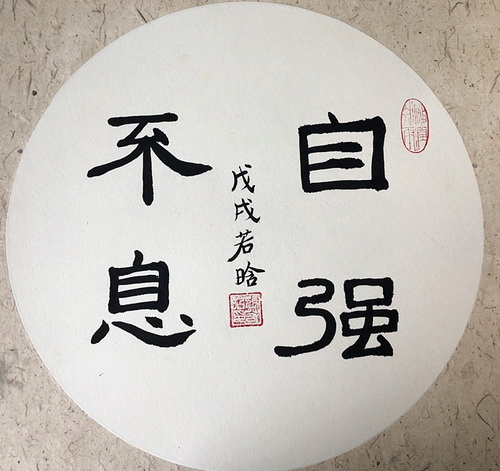 自强
不息
戊戌若晗